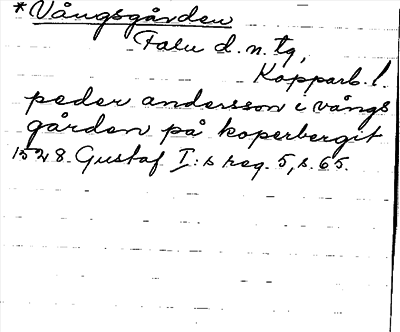 * Vångsgården
Falu d. n. tg,
Kopparb. l.
peder andersson i vångs
gården på koperbergit
1528. Gustaf I:s reg. 5, s. 65.